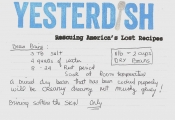 YESTERDISH
Rescuing America's Lost Recipes
Dried Beans
3 TB. salt
4 quarts of water
8 - 24 hour period
Soak at Room Temperature
1 lb = 2 cups
DRY BEANS
A dried dry bean that has been soaked properly
will be creamy dreamy, not mushy grainy!
Brining softens the skin! Only